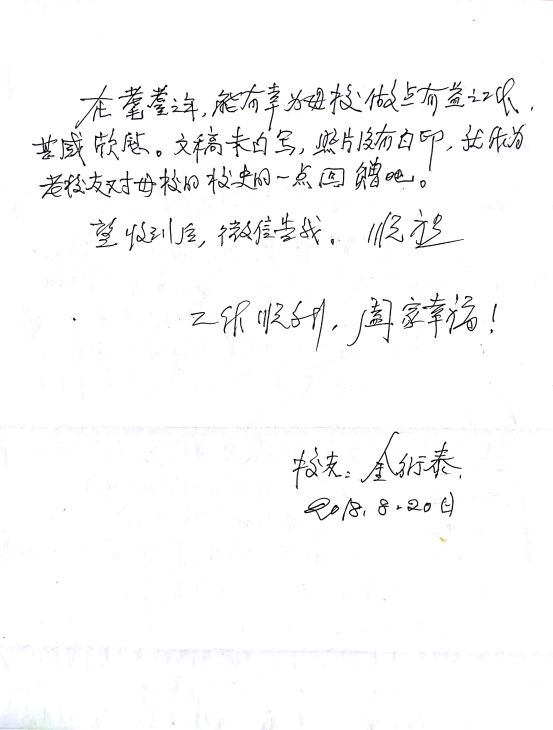 在耄耋之年,能有幸为母校做点有益之工作,
甚感欣慰。文稿未白写,照片没有白印,就作为
老校友对母校的校史的一点回赠吧。
望收到后,微信告我。顺祝
工作顺利,阖家幸福!
校友:金衍泰.
2018.8.20日